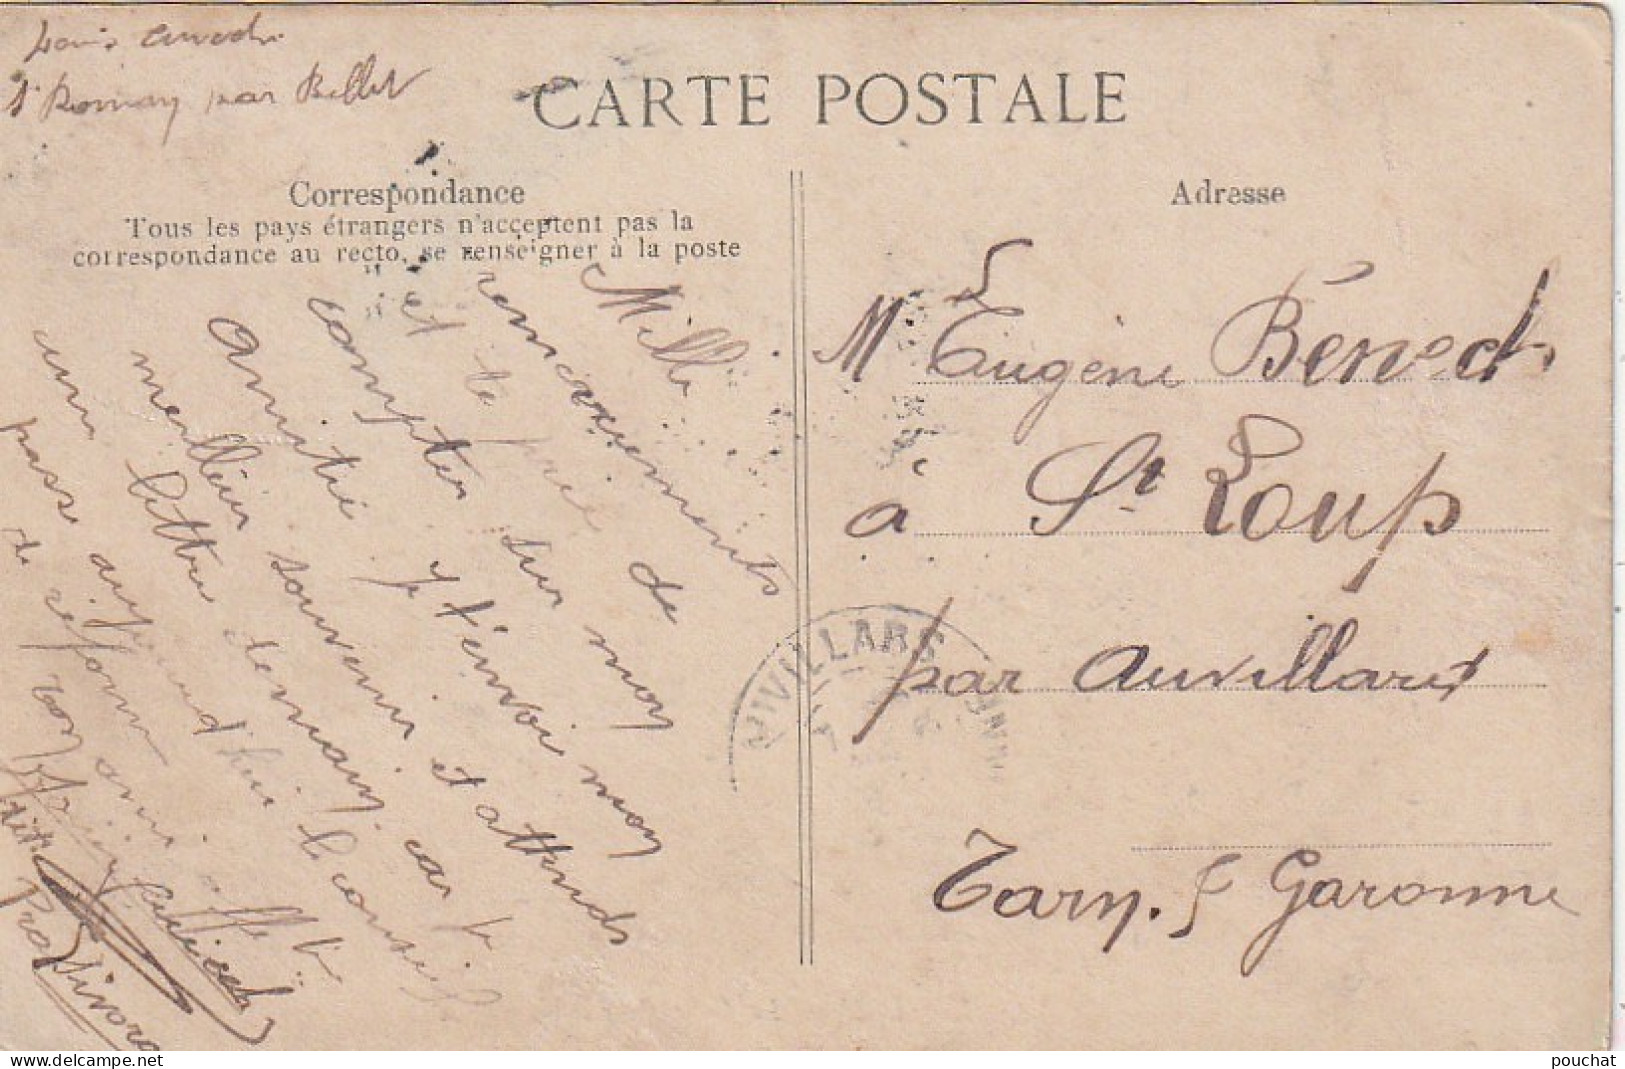 Louis
St Romain par
CARTE POSTALE
Correspondance
Tous les pays étrangers n'acceptent pas la
correspondance au recto, se renseigner à la poste
Mille
remerciements
et te prie de
compter sur mon
amitié je t'envoi mon
meilleur souvenir et attends
une lettre demain car je
pass aujourd'hui le conseil
de réforme
ton ami
Adresse
Mr Eugène Bénech
à St Loup
par Auvillars
Tarn. & Garonne
AUVILLARS
www.delcampe.net
pouchat